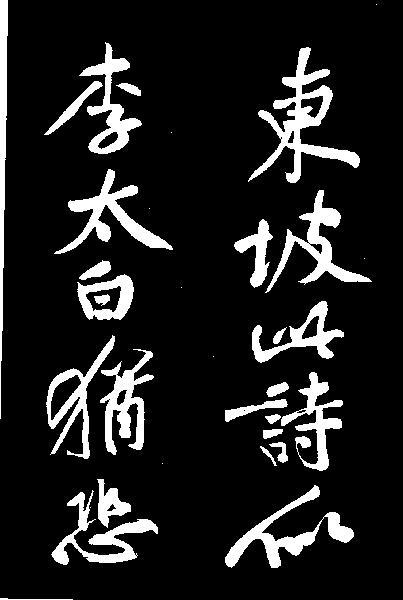 東坡此詩似
李太白猶恐